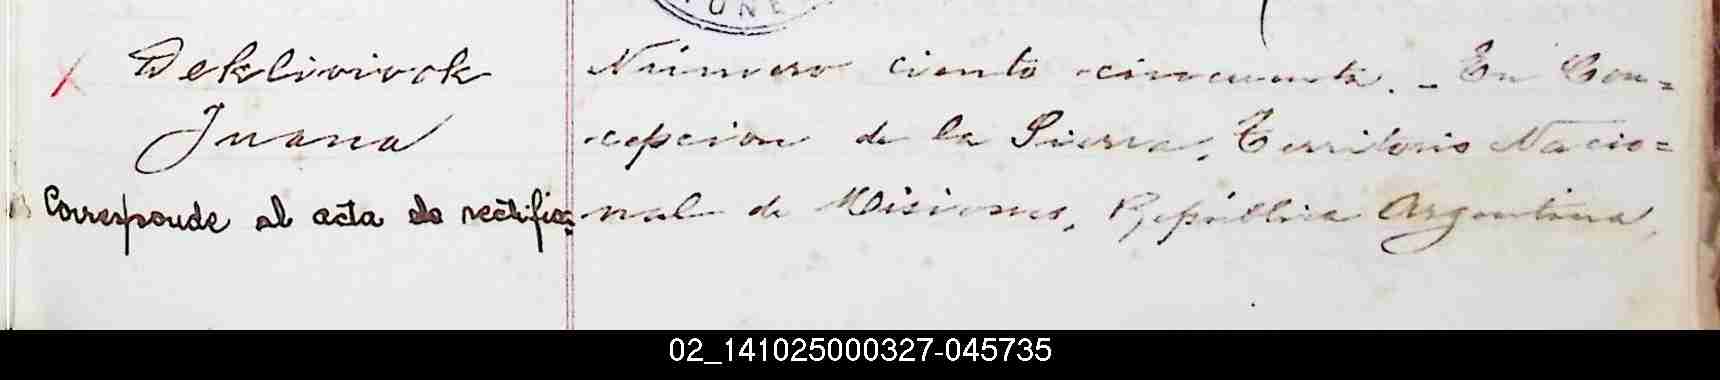 UNE
Deklivivok
Juana
Corresponde al acta de rectifica=
Número ciento cincuenta. - En Con=
cepcion de la Sierra, Territorio Nacio=
nal de Misiones, República Argentina,
02_141025000327-045735